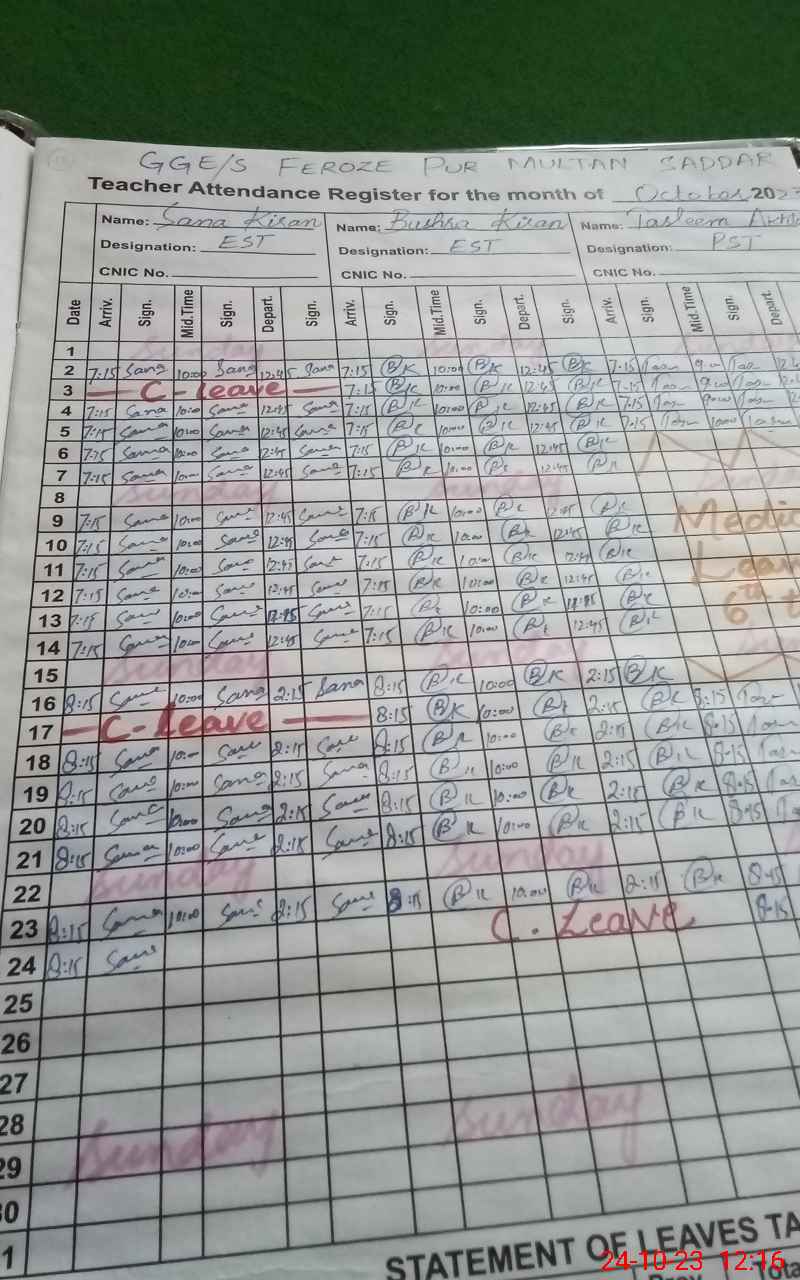 GGE/S FEROZE PUR MULTAN SADDAR
Teacher Attendance Register for the month of October 2023
Name: Sana Kiran Name: Bushra Kiran Name: Tasleem
Designation: EST Designation: EST Designation: PST
CNIC No. CNIC No. CNIC No.
Date Arriv. Sign. Mid.Time Sign. Depart. Sign. Arriv. Sign. Mid.Time Sign. Depart. Sign. Arriv. Sign. Mid.Time Sign. Depart.
1 Sunday Sunday Sunday
2 7:15 Sana 10:00 Sana 12:45 Sana 7:15 BK 10:00 BK 12:45 BK 7:15
3 C-leave 7:15 BK 10:00 BK 12:45 BK 7:15
4 7:15 Sana 10:00 Sana 12:45 Sana 7:15 BK 10:00 BK 12:45 BK 7:15
5 7:15 Sana 10:00 Sana 12:45 Sana 7:15 BK 10:00 BK 12:45 BK 7:15 10:00
6 7:15 Sana 10:00 Sana 12:45 Sana 7:15 BK 10:00 BK 12:45 BK
7 7:15 Sana 10:00 Sana 12:45 Sana 7:15 BK 10:00 BK 12:45 BK
8 Sunday Sunday
9 7:15 Sana 10:00 Sana 12:45 Sana 7:15 BK 10:00 BK 12:45 BK Medic
10 7:15 Sana 10:00 Sana 12:45 Sana 7:15 BK 10:00 BK 12:45 BK
11 7:15 Sana 10:00 Sana 12:45 Sana 7:15 BK 10:00 BK 12:45 BK Leav
12 7:15 Sana 10:00 Sana 12:45 Sana 7:15 BK 10:00 BK 12:45 BK
13 7:15 Sana 10:00 Sana 12:45 Sana 7:15 BK 10:00 BK 12:45 BK 6th t
14 7:15 Sana 10:00 Sana 12:45 Sana 7:15 BK 10:00 BK 12:45 BK
15 Sunday Sunday
16 8:15 Sana 10:00 Sana 2:15 Sana 8:15 BK 10:00 BK 2:15 BK
17 C-Leave 8:15 BK 10:00 BK 2:15 BK 8:15
18 8:15 Sana 10:00 Sana 2:15 Sana 8:15 BK 10:00 BK 2:15 BK 8:15
19 8:15 Sana 10:00 Sana 2:15 Sana 8:15 BK 10:00 BK 2:15 BK 8:15
20 8:15 Sana 10:00 Sana 2:15 Sana 8:15 BK 10:00 BK 2:15 BK 8:15
21 8:15 Sana 10:00 Sana 2:15 Sana 8:15 BK 10:00 BK 2:15 BK 8:15
22 Sunday Sunday
23 8:15 Sana 10:00 Sana 2:15 Sana 8:15 BK 10:00 BK 2:15 BK 8:15
24 8:15 Sana C. Leave 8:15
25
26
27
28
29 Sunday Sunday
30
1
STATEMENT OF LEAVES TA
Tota
24-10-23 12:16